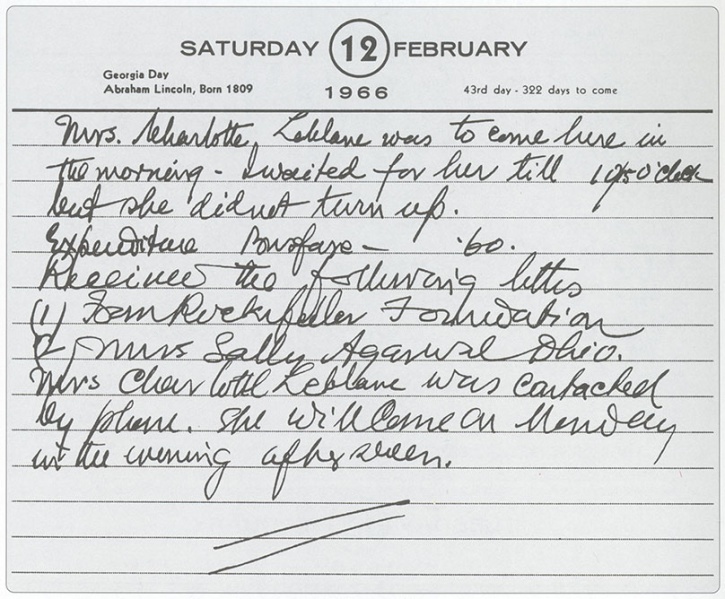 SATURDAY 12 FEBRUARY
Georgia Day
Abraham Lincoln, Born 1809
1966
43rd day - 322 days to come
Mrs. Charlotte Leblanc was to come here in
the morning - I waited for her till o'clock
but she did not turn up.
Expenditure Busfare — .60.
Received the following letters
(1) From Rockefeller Foundation
2 Mrs Sally Agarwal Ohio.
Mrs Charlotte Leblanc was contacted
by phone. She will come on Monday
in the evening after seven.